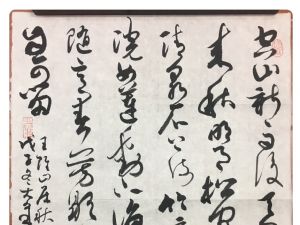 空山新雨後天
來秋明月松間
清泉石上流竹
浣女蓮動下漁
隨意春芳歇
自可留
王維山居秋
戊子冬